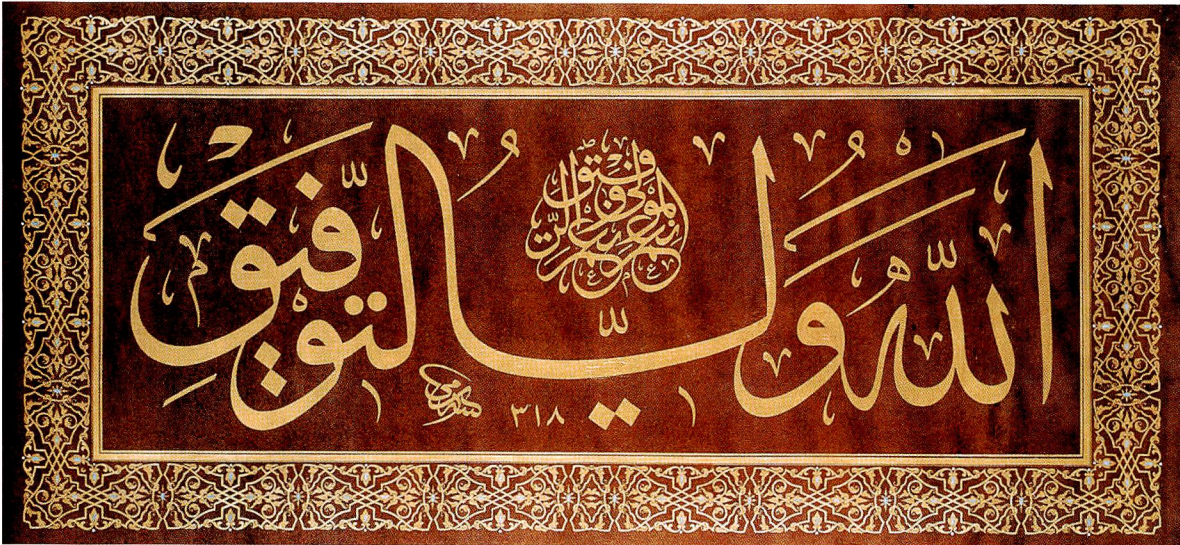 الله ولي التوفيق
نعم المولى ونعم الرفيق
٣١٨